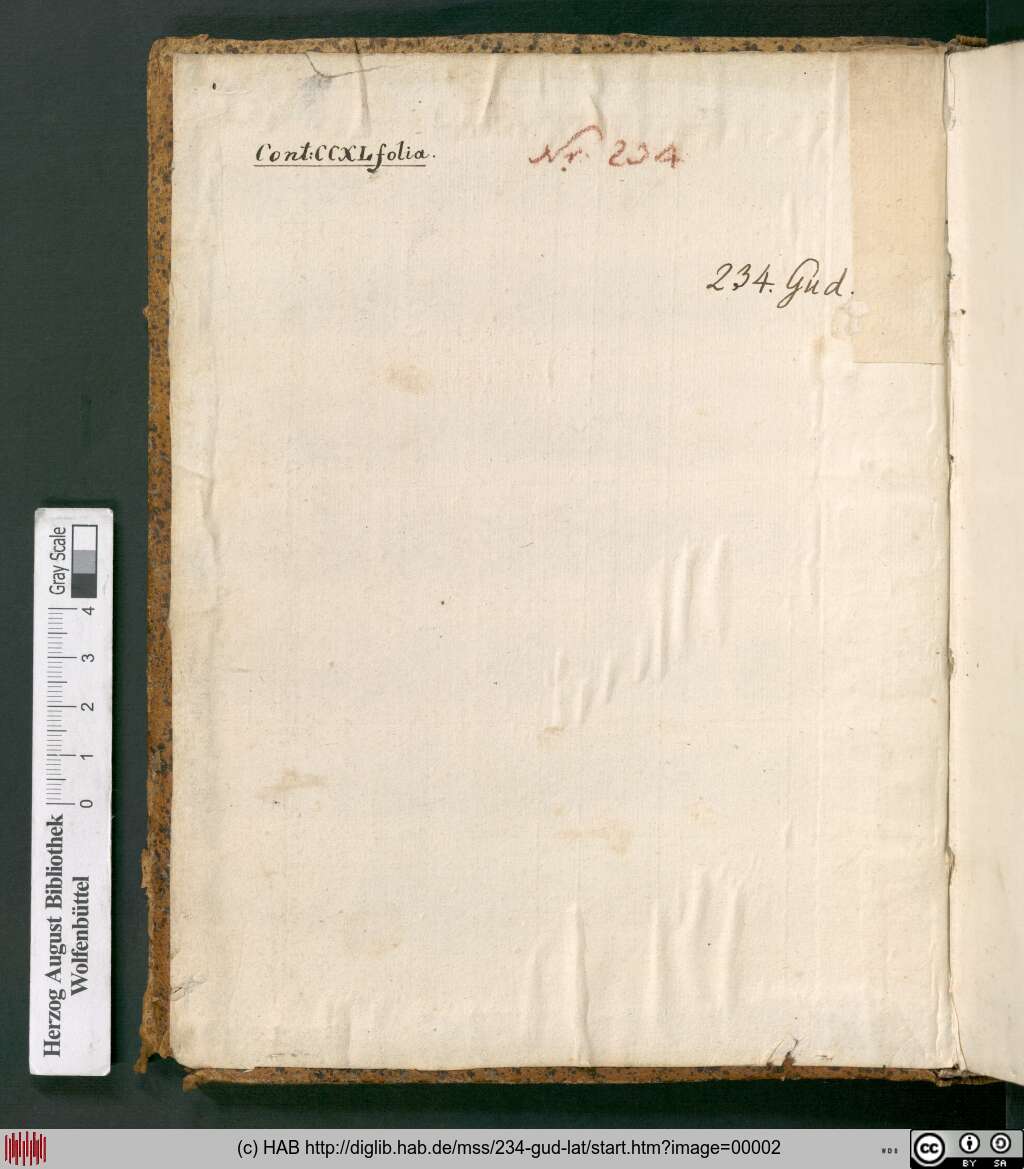 Cont: CCXL folia.
Nr. 234
234. Gud.
Herzog August Bibliothek
Wolfenbüttel
0 1 2 3 4
Gray Scale
(c) HAB http://diglib.hab.de/mss/234-gud-lat/start.htm?image=00002
WDB
cc
BY SA